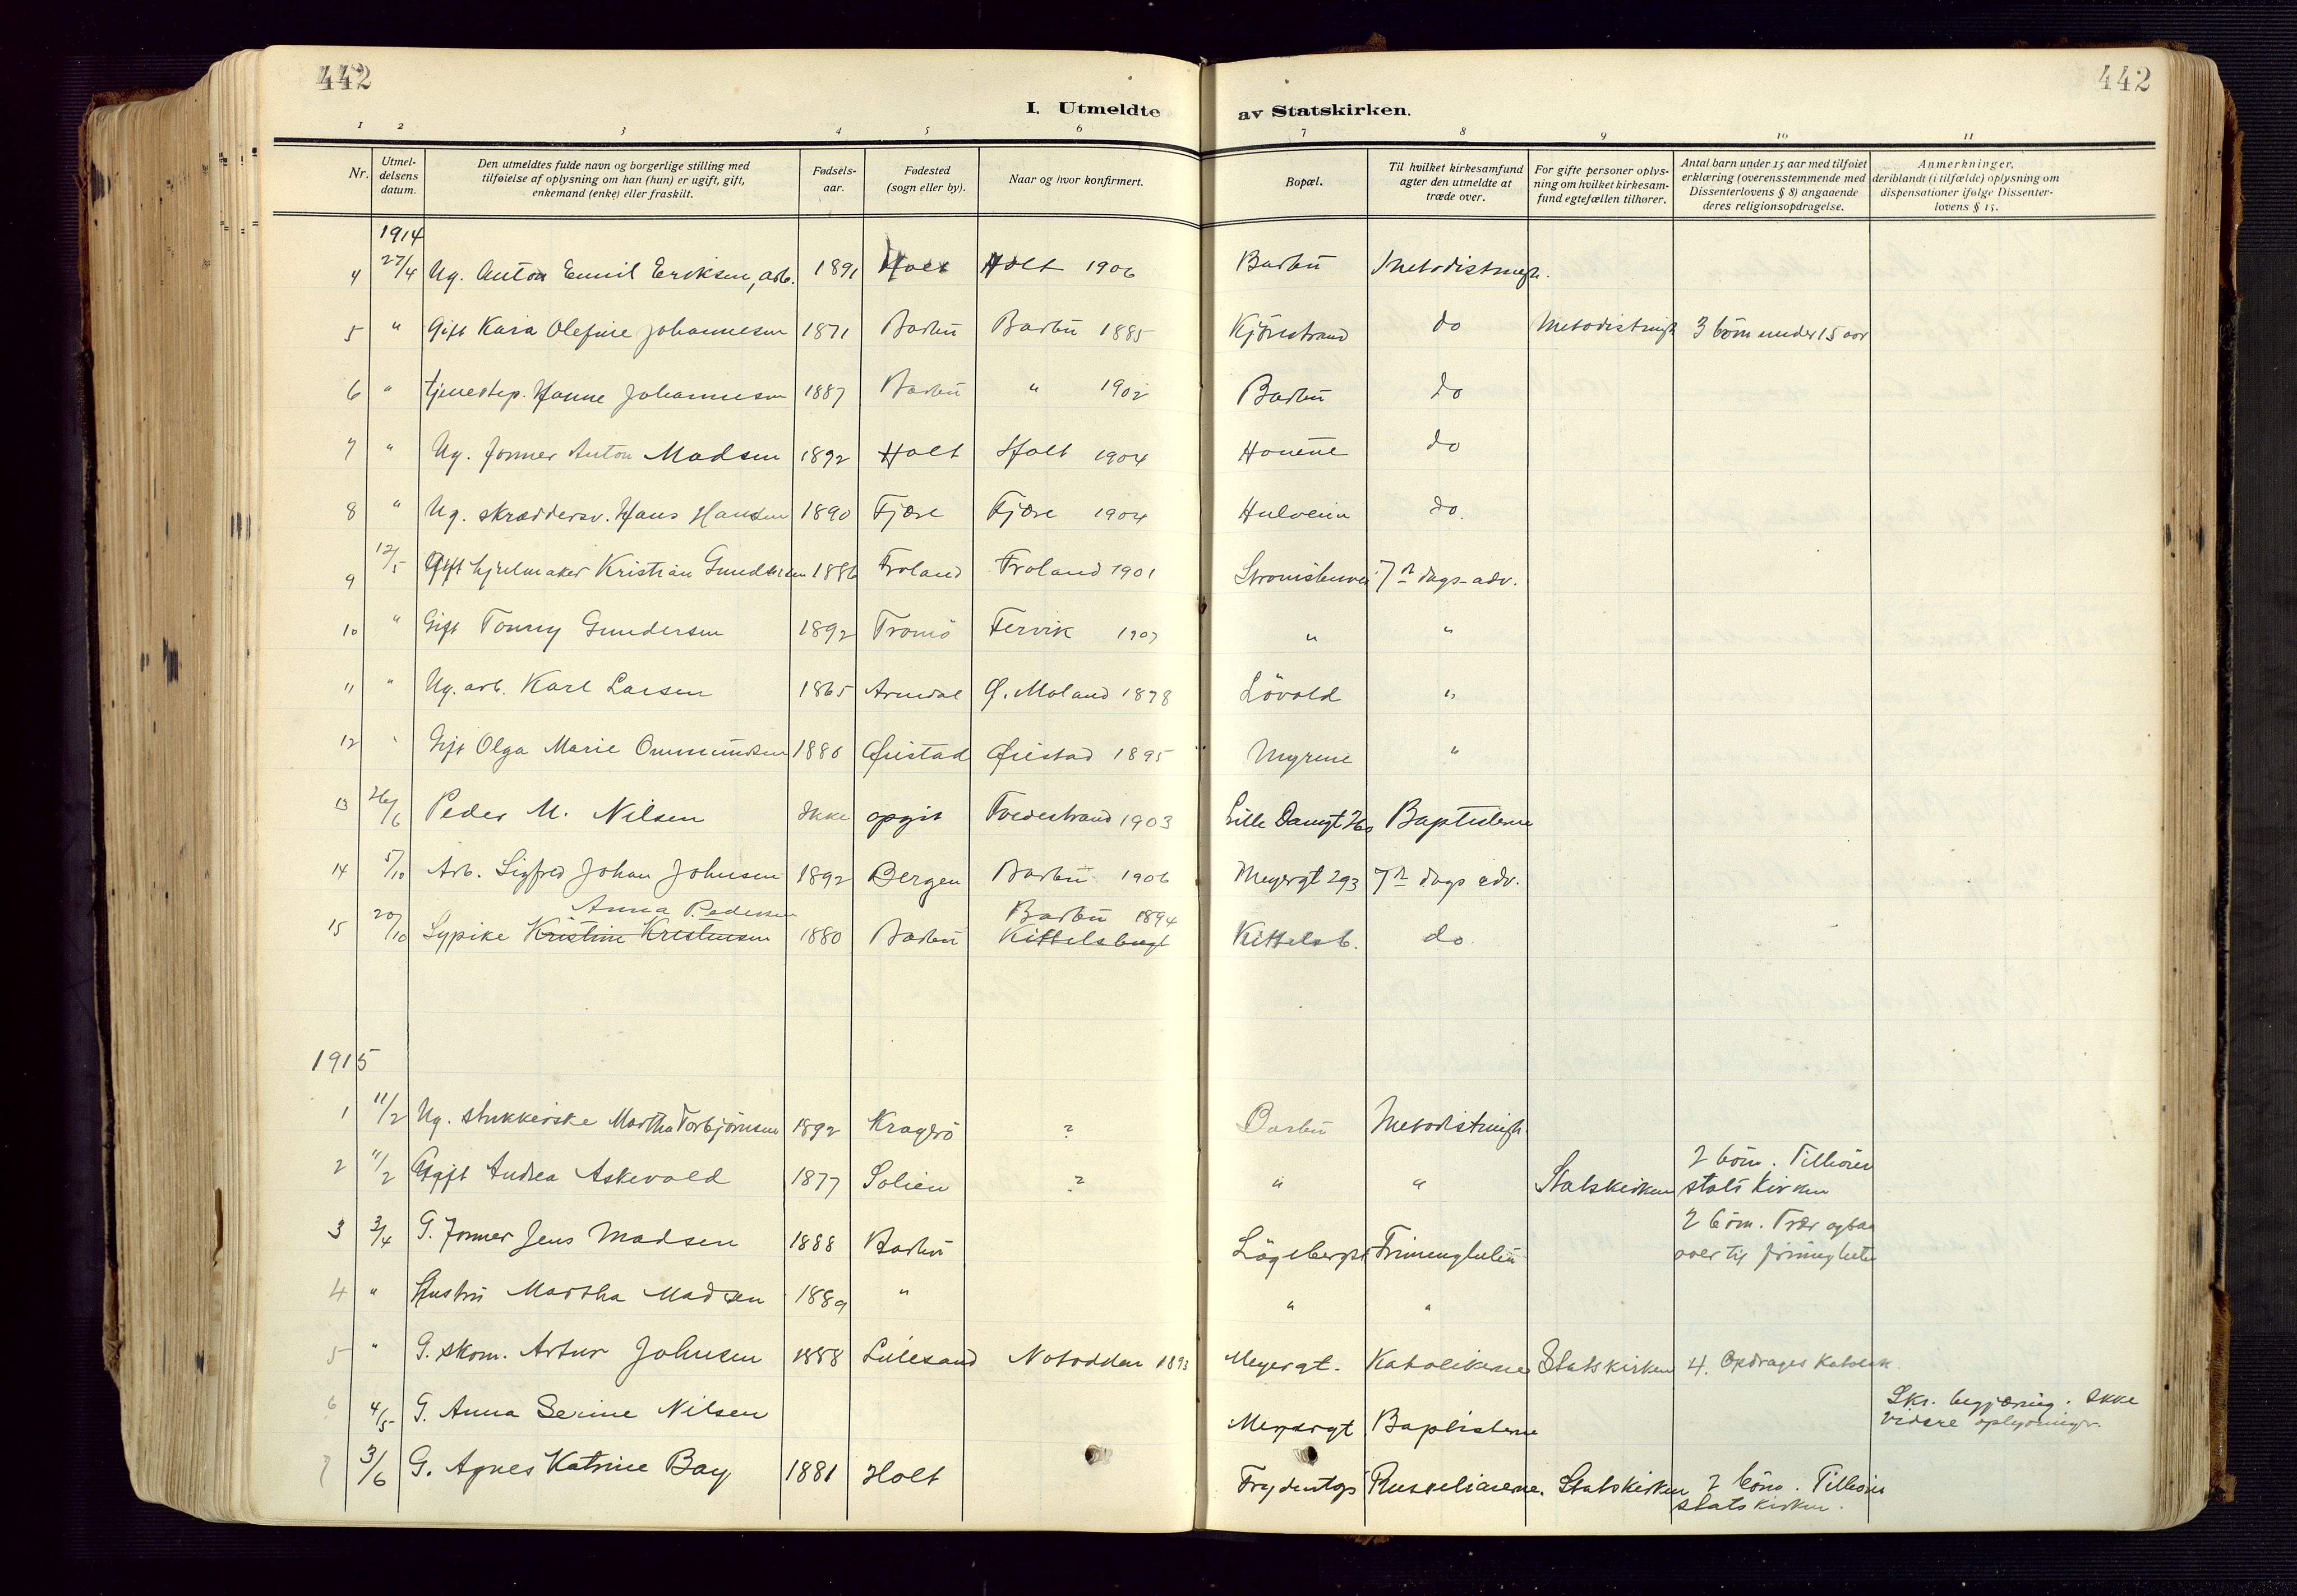 442
442
I. Utmeldte av Statskirken.
1 2 3 4 5 6 7 8 9 10 11
Nr. | Utmeldelsens datum. | Den utmeldtes fulde navn og borgerlige stilling med tilføielse af oplysning om han (hun) er ugift, gift, enkemand (enke) eller fraskilt. | Fødselsaar. | Fødested (sogn eller by). | Naar og hvor konfirmert. | Bopæl. | Til hvilket kirkesamfund agter den utmeldte at træde over. | For gifte personer oplysning om hvilket kirkesamfund egtefællen tilhører. | Antal barn under 15 aar med tilføiet erklæring (overensstemmende med Dissenterlovens § 8) angaaende deres religionsopdragelse. | Anmerkninger, deriblandt (i tilfælde) oplysning om dispensationer ifølge Dissenterlovens § 15.
1914
4 27/4 Ug. Anton Emil Eriksen, arb. 1891 Holt Holt 1906 Barbu Metodistmgh.
5 " Gift Kaia Olefine Johannesen 1871 Barbu Barbu 1885 do Metodistmgh 3 börn under 15 aar
6 " tjenestep. Hanne Johannesen 1887 Barbu " 1902 Barbu do
7 " Ug. former Anton Madsen 1892 Holt Holt 1904 do
8 " Ug. skræddersv. Hans Hansen 1890 Fjære Fjære 1904 do.
9 12/5 Gift hjulmaker Kristian Gundersen 1886 Froland Froland 1901 7n dags-adv.
10 " Gift Tonny Gundersen 1892 Tromö Fervik 1907 " "
11 " Ug. arb. Karl Larsen 1865 Arendal Ø. Moland 1878 Lövold "
12 " Gift Olga Marie Ommundsen 1880 Øiestad Øiestad 1895 Myrene "
13 26/6 Peder M. Nilsen Ikke opgit Tvedestrand 1903 Baptisterne
14 5/10 Arb. Sigfred Johan Johnsen 1892 Bergen Barbu 1906 Meyergt 293 7n dags adv.
Anna Pedersen Barbu 1894
15 20/10 Sypike Kristine Kristensen 1880 Barbu Kittelsbugt Kittelsb. do
1915
1 11/2 Ug. strikkerske Martha Torbjörnsen 1892 Kragerö ? Barbu Metodistmgh.
2 11/2 Gift Andrea Askevold 1877 Solien ? " " Statskirken 2 börn. Tilhörer
statskirken
3 3/4 G. Former Jens Madsen 1888 Barbu Frimenigheten 2 börn. Træ ogsaa
over til frimenigheten
4 " Hustru Martha Madsen 1889 " " "
5 " G. skom. Artur Johnsen 1888 Lillesand Notodden 1893 Meyergt. Katolikerne Statskirken 4. Opdrages katolsk.
6 4/5 G. Anna Serine Nilsen Meyergt Baptisterne Skr. begjæring. Ikke
videre oplysninger.
7 3/6 G. Agnes Katrine Bay 1881 Holt Russelianerne. Statskirken 2 börn. Tilhörer
statskirken.